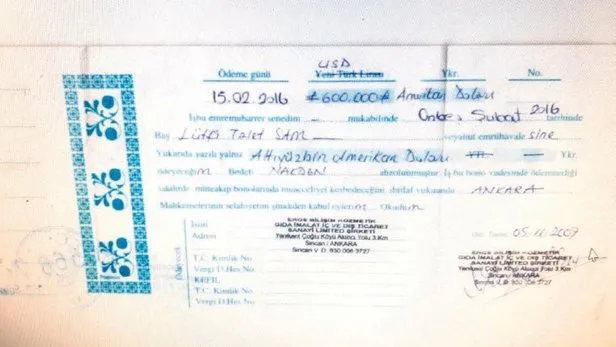 USD
Ödeme günü Yeni Türk Lirası Ykr. No.
15.02.2016 #600.000# Amerikan Doları
İşbu emremuharrer senedim mukabilinde Onbeş Şubat 2016 tarihinde
Bay Lütfi Talet SAM veyahut emrühavale sine
Yukarıda yazılı yalnız Altıyüzbin Amerikan Doları YTL Ykr.
ödeyeceğim Bedeli NAKDEN ahzolunmuştur. İş bu bono vadesinde ödenmediği
takdirde müteakip bonolarında muacceliyet kesbedeceğini, ihtilaf vukuunda ANKARA
Mahkemelerinin selahiyetini şimdiden kabul ederim
İsim
Adresi
EROS BİLİŞİM KOZMETİK
GIDA İMALAT İÇ VE DIŞ TİCARET
SANAYİ LİMİTED ŞİRKETİ
Yenikent Çoğlu Köyü Alaniçi Yolu 3.Km
Sincan / ANKARA
Sincan V.D. 830 006 3727
05.11.2009
T.C. Kimlik No
Vergi D.Hes. No
KEFİL
T.C. Kimlik No
Vergi D.Hes. No
EROS BİLİŞİM KOZMETİK
GIDA İMALAT İÇ VE DIŞ TİCARET
SANAYİ LİMİTED ŞİRKETİ
Yenikent Çoğlu Köyü Alaniçi Yolu 3.Km
Sincan / ANKARA
Sincan V.D. 830 006 3727